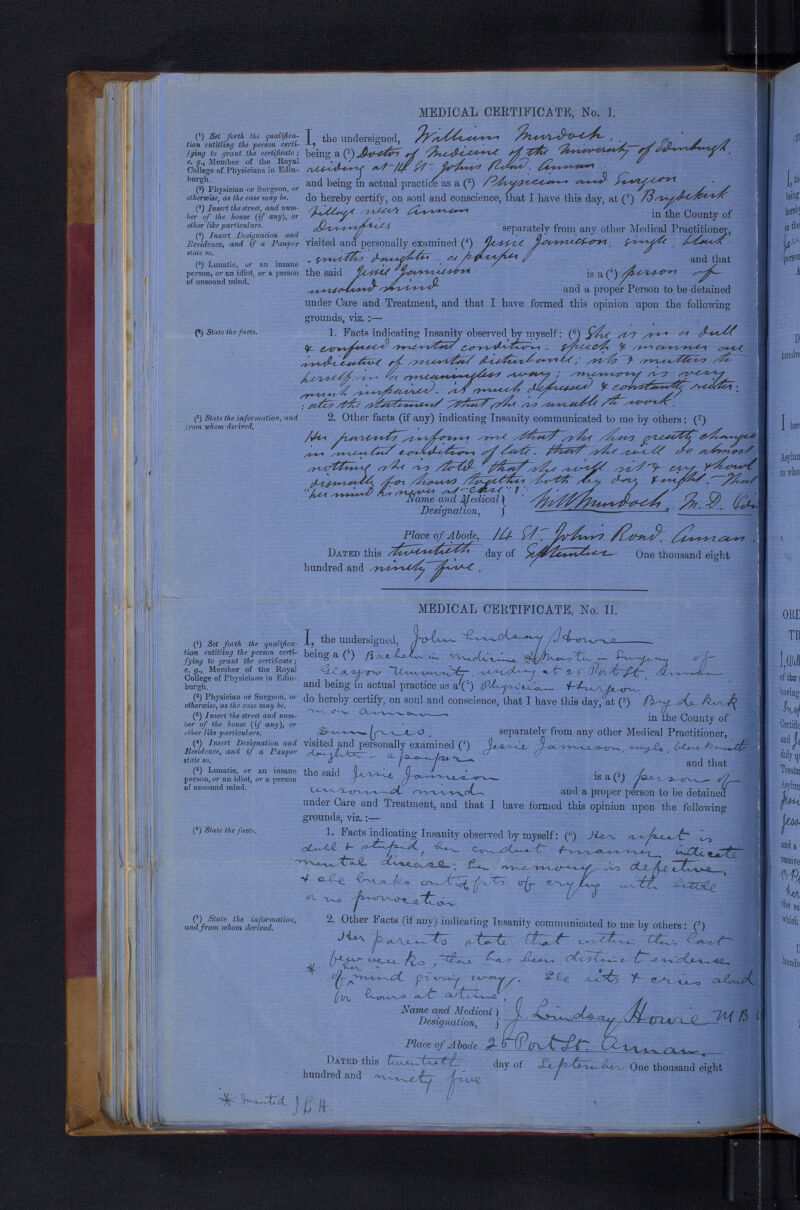 MEDICAL CERTIFICATE, No. I.
(¹) Set forth the qualifica-
tion entitling the person certi-
fying to grant the certificate;
e. g., Member of the Royal
College of Physicians in Edin-
burgh.
(²) Physician or Surgeon, or
otherwise, as the case may be.
(³) Insert the street, and num-
ber of the house (if any), or
other like particulars.
(⁴) Insert Designation and
Residence, and if a Pauper
state so.
(⁵) Lunatic, or an insane
person, or an idiot, or a person
of unsound mind.
I, the undersigned, William Murdoch.
being a (¹) Doctor of Medicine of the University of Edinburgh,
residing at 14 St. Johns Road, Annan
and being in actual practice as a (²) Physician and Surgeon
do hereby certify, on soul and conscience, that I have this day, at (³) Brydekirk
Village near Annan in the County of
Dumfries separately from any other Medical Practitioner,
visited and personally examined (⁴) Jessie Jamieson, single, black
-smiths daughter. a pauper and that
the said Jessie Jamieson is a (⁵) person of
unsound mind and a proper Person to be detained
under Care and Treatment, and that I have formed this opinion upon the following
grounds, viz. :—
(⁶) State the facts.
1. Facts indicating Insanity observed by myself: (⁶) She is in a dull
& confused mental condition. Speech & manner are
indicative of mental disturbance; sits & mutters to
herself in a meaningless way; memory is very
much impaired. is much depressed & constantly reiter:
:ates the statement that she is unable to work.
(⁷) State the information, and
from whom derived.
2. Other facts (if any) indicating Insanity communicated to me by others: (⁷)
Her parents inform me that she has greatly changed
in mental condition of late. that she will do almost
nothing she is told. that she will sit & cry & howl
dismally for hours together both by day & night. That
"her mind is never at ease"!
Name and Medical
Designation, Will Murdoch, M.D.
Place of Abode, 14 St. Johns Road, Annan.
DATED this twentieth day of September One thousand eight
hundred and ninety five.
MEDICAL CERTIFICATE, No. II.
(¹) Set forth the qualifica-
tion entitling the person certi-
fying to grant the certificate;
e. g., Member of the Royal
College of Physicians in Edin-
burgh.
(²) Physician or Surgeon, or
otherwise, as the case may be.
(³) Insert the street and num-
ber of the house (if any), or
other like particulars.
(⁴) Insert Designation and
Residence, and if a Pauper
state so.
(⁵) Lunatic, or an insane
person, or an idiot, or a person
of unsound mind.
I, the undersigned, John Lindsay Howie
being a (¹) Bachelor in Medicine & Master in Surgery of
Glasgow University residing at 25 Port St, Annan
and being in actual practice as a (²) Physician & Surgeon
do hereby certify, on soul and conscience, that I have this day, at (³) Brydekirk
near Annan in the County of
Dumfries. separately from any other Medical Practitioner,
visited and personally examined (⁴) Jessie Jamieson, single, blacksmiths
daughter - a pauper and that
the said Jessie Jamieson is a (⁵) person of
unsound mind and a proper person to be detained
under Care and Treatment, and that I have formed this opinion upon the following
grounds, viz. :—
(⁶) State the facts.
1. Facts indicating Insanity observed by myself: (⁶) Her aspect is
dull & stupid, her conduct & manner indicate
mental disease; her memory is defective,
& she breaks out in fits of crying with little
or no provocation
(⁷) State the information,
and from whom derived.
2. Other Facts (if any) indicating Insanity communicated to me by others: (⁷)
Her parents state that within this last
few weeks, there has been distinct evidence
* of her mind giving way. She sits & cries aloud
for hours at a time.
Name and Medical
Designation, J. Lindsay Howie M.B.
Place of Abode 25 Port St. Annan.
DATED this twentieth day of September One thousand eight
hundred and ninety five
* Inserted J L H.